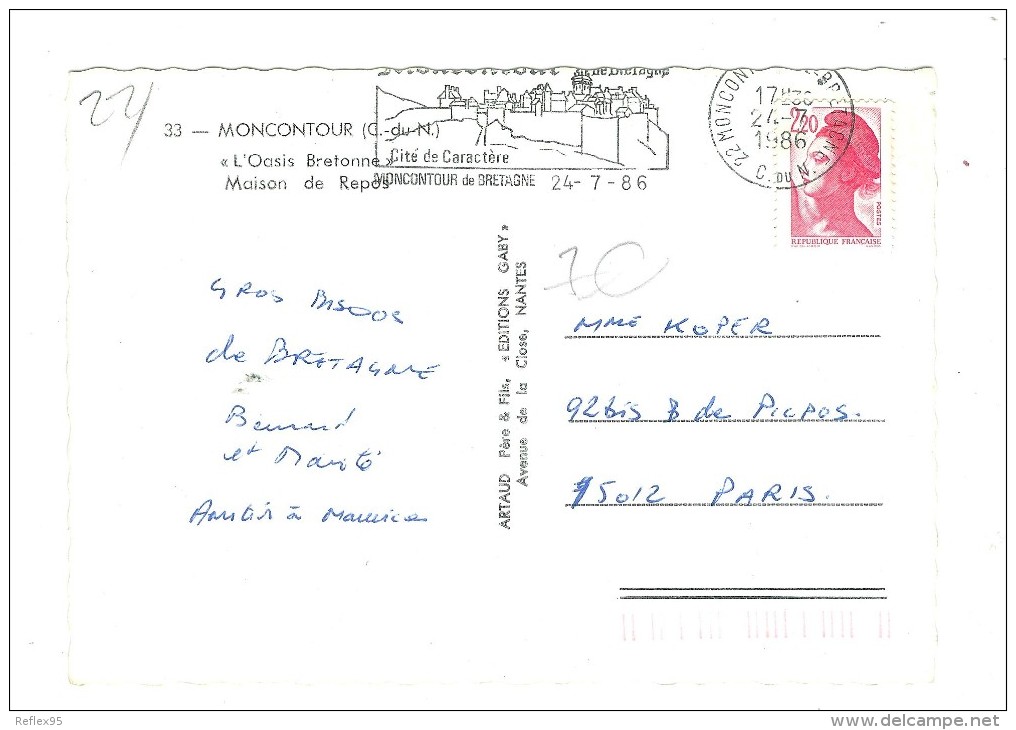 24
33 — MONCONTOUR (C.-du-N.)
« L'Oasis Bretonne »
Maison de Repos
Cité de Caractère
MONCONTOUR de BRETAGNE 24-7-86
22 MONCONT
17H30
24-7
1986
C. DU N.
2,20
POSTES
REPUBLIQUE FRANCAISE
GROS BISOUS
de BRETAGNE
Bernard
et Maïté
Amitiés à Maurice
ARTAUD Père & Fils, « EDITIONS GABY »
Avenue de la Close, NANTES
MME KOPER
92bis B de Picpus.
75012 PARIS.
Reflex95
www.delcampe.net